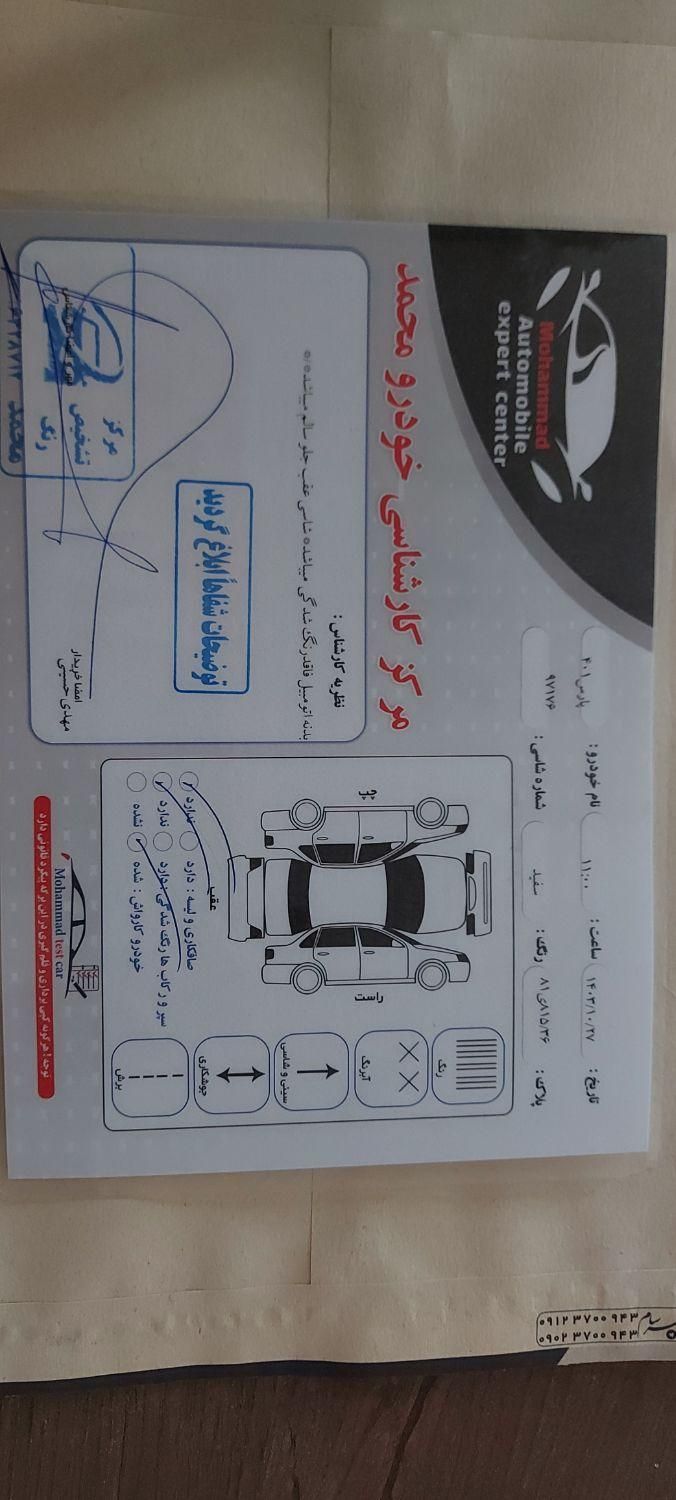 Mohammad
Automobile
expert center
مرکز کارشناسی خودرو محمد
نام خودرو : پارس ۴۰۱
ساعت : ۱۱:۰۰
تاریخ : ۱۴۰۳/۱۰/۲۷
شماره شاسی : ۹۷۱۷۶
رنگ : سفید
پلاک : ۸۱۵/۳۶ی۸۱
نظریه کارشناس :
بدنه اتومبیل فاقد رنگ شدگی میباشد ه شاسی عقب جلو سالم میباشد
توضیحات شفاهاً ابلاغ گردید
امضا خریدار
مهدی حسینی
مرکز
تشخیص
رنگ
محمد
چپ
راست
عقب
صافکاری و لیسه : دارد ندارد
سپر و رکاب ها رنگ شدگی : دارد ندارد
خودرو کارواش : شده نشده
رنگ
آبرنگ
سینی و شاسی
جوشکاری
برش
Mohammad test car
توجه ! هرگونه کپی برداری و قلم گیری در این برگه پیگرد قانونی دارد
۰۹۱۲ ۳۷۰۰ ۹۴۳
۰۹۰۲ ۳۷۰۰ ۹۴۳